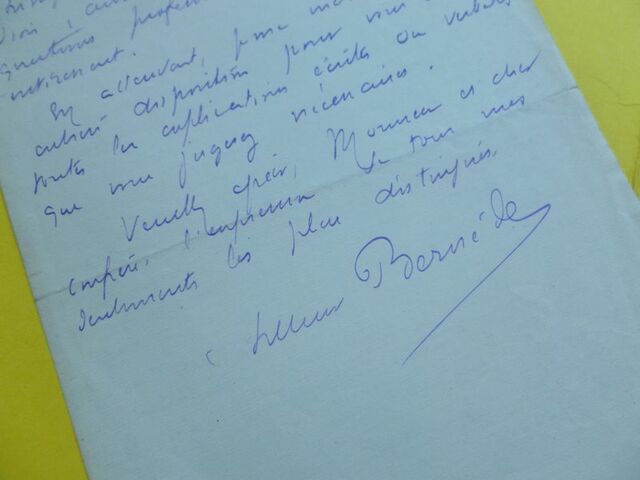 questions
maintenant.
En attendant, je me mets
entière disposition pour vous
toutes les explications écrites ou verbales
que vous jugerez nécessaires.
Veuillez agréer, Monsieur et cher
confrère, l'expression de tous mes
sentiments les plus distingués.
Bernède